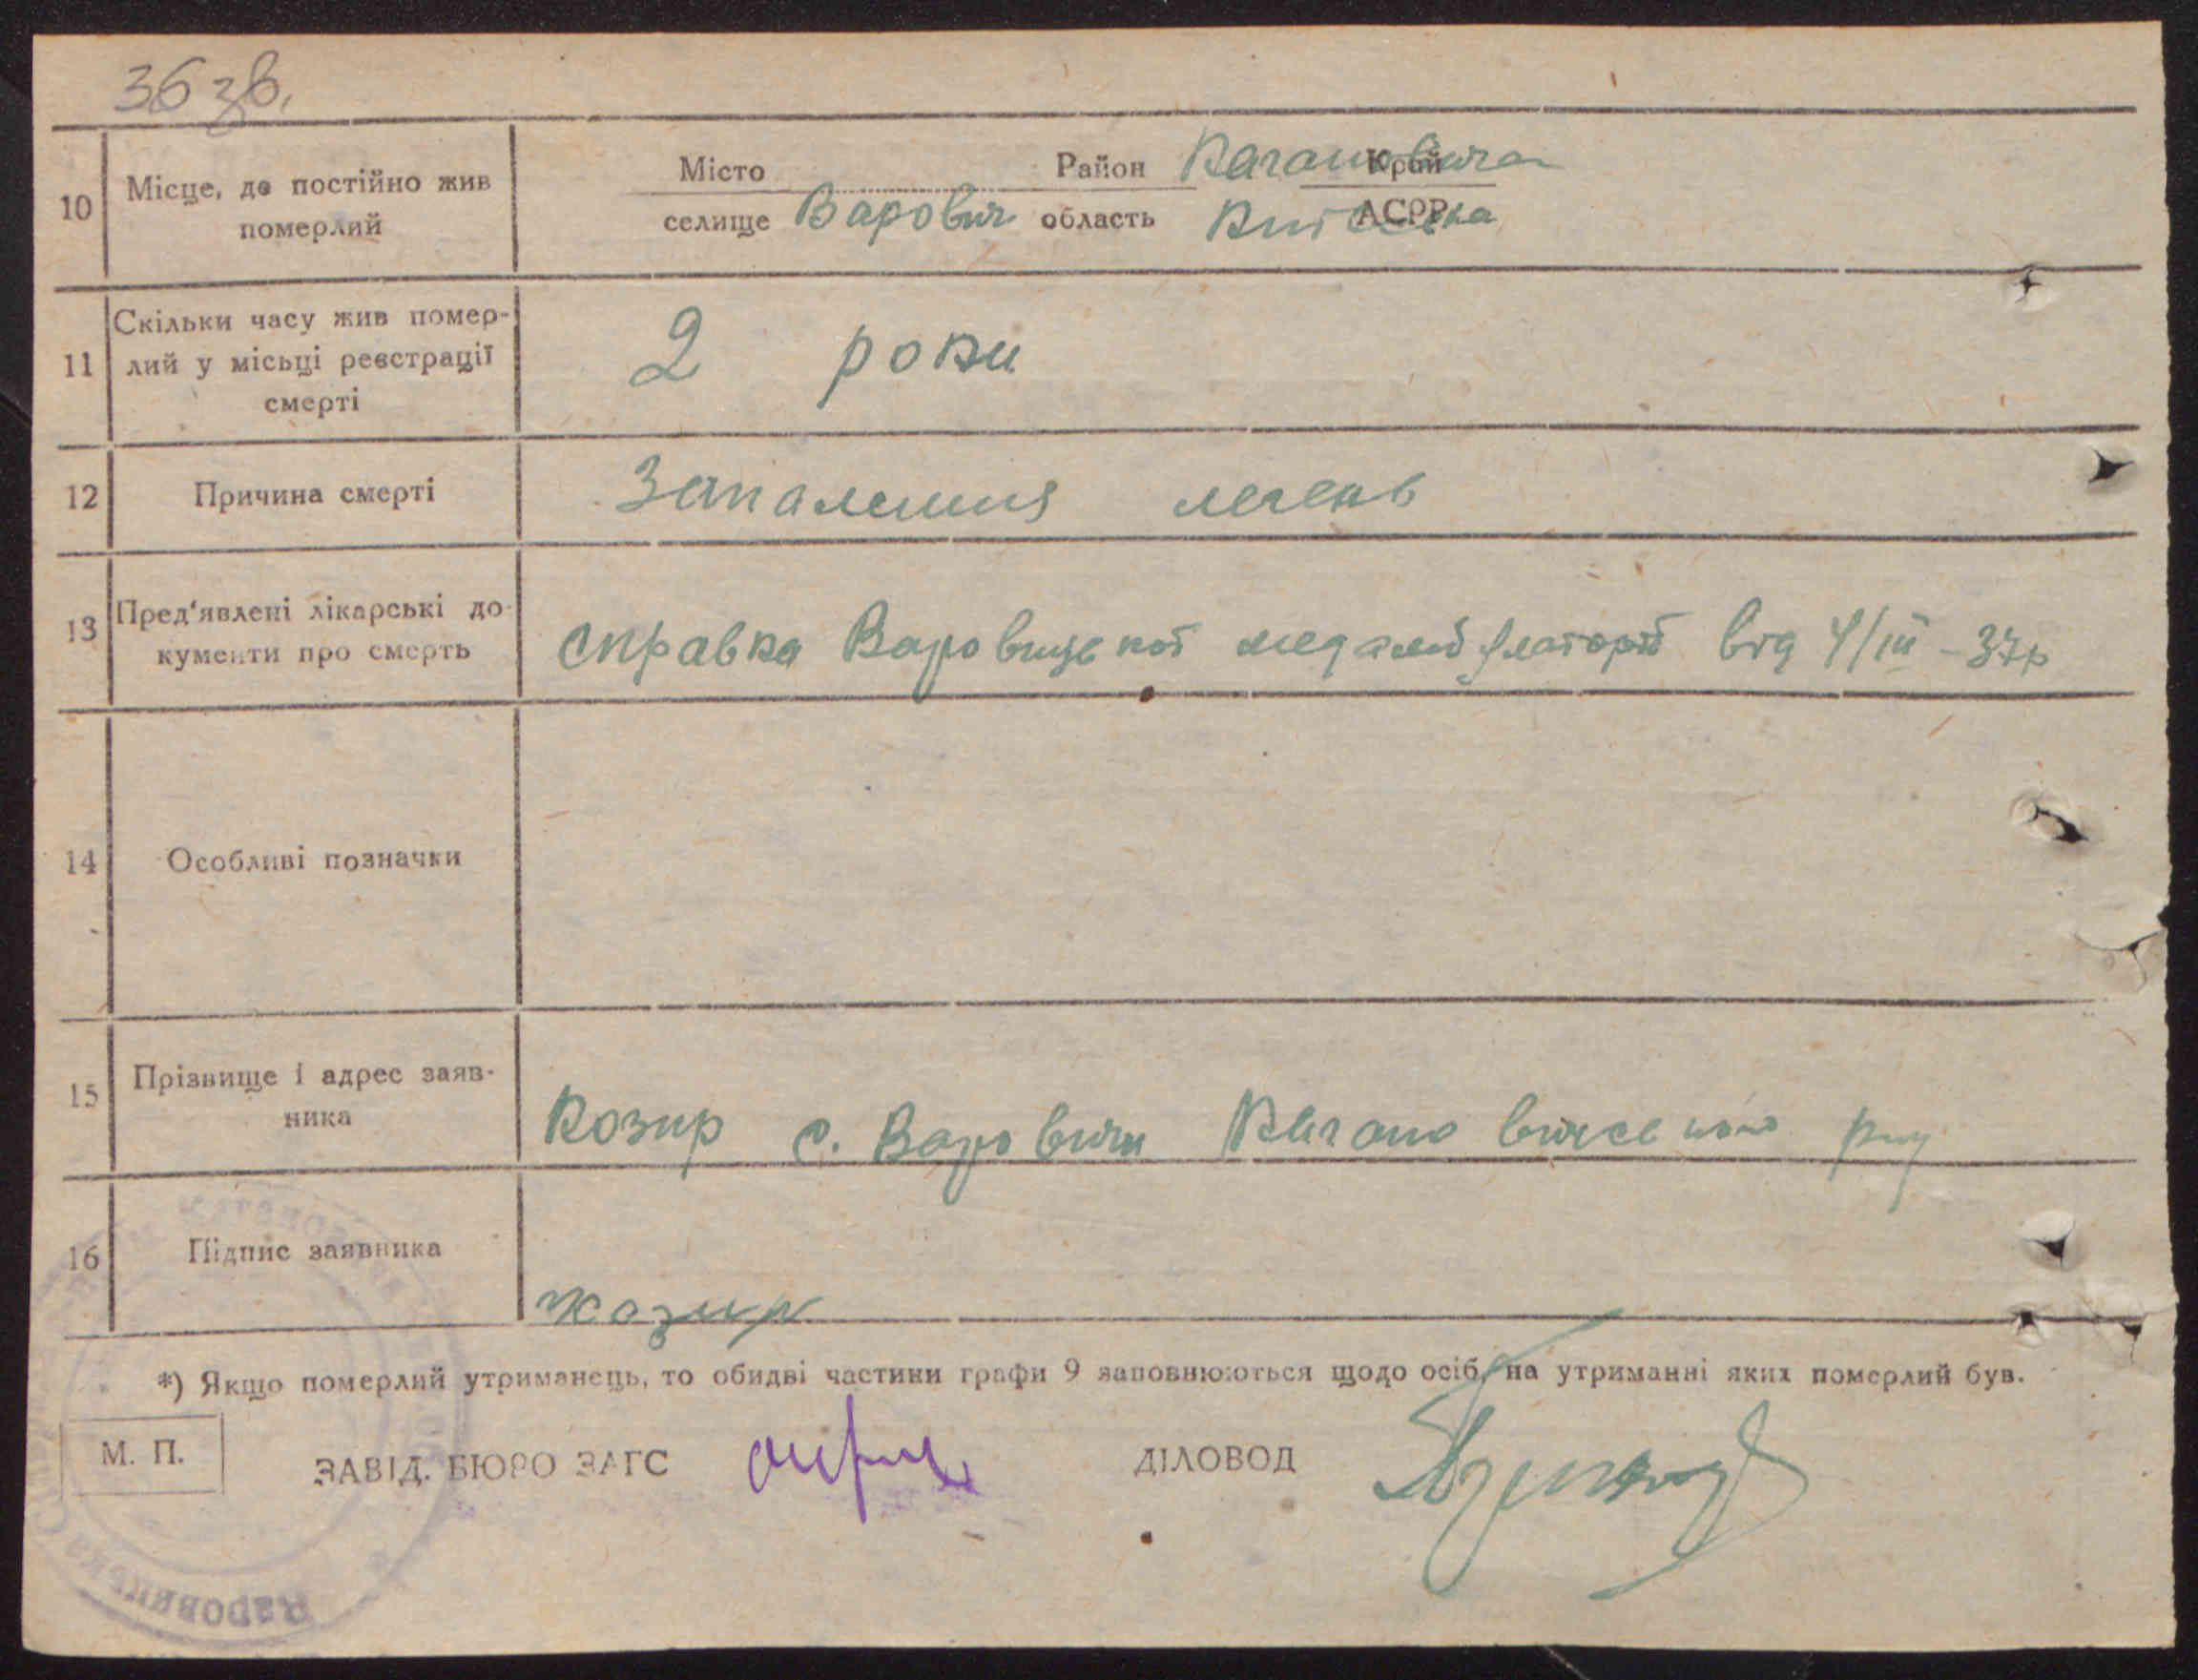 36 зв.
10
Місце, де постійно жив
померлий
Місто
Район Кагановича
Край
селище Варовичі область Київська
АСРР
11
Скільки часу жив помер-
лий у місьці реєстрації
смерті
2 роки
12
Причина смерті
Запалення легень
13
Пред'явлені лікарські до-
кументи про смерть
справка Варовицької від 4/III-37р
14
Особливі позначки
15
Прізвище і адрес заяв-
ника
Козир с. Варовичи Кагановичського р-ну
16
Підпис заявника
козир
*) Якщо померлий утриманець, то обидві частини графи 9 заповнюються щодо осіб, на утриманні яких померлий був.
М. П.
ЗАВІД. БЮРО ЗАГС
ДІЛОВОД
Варовицька